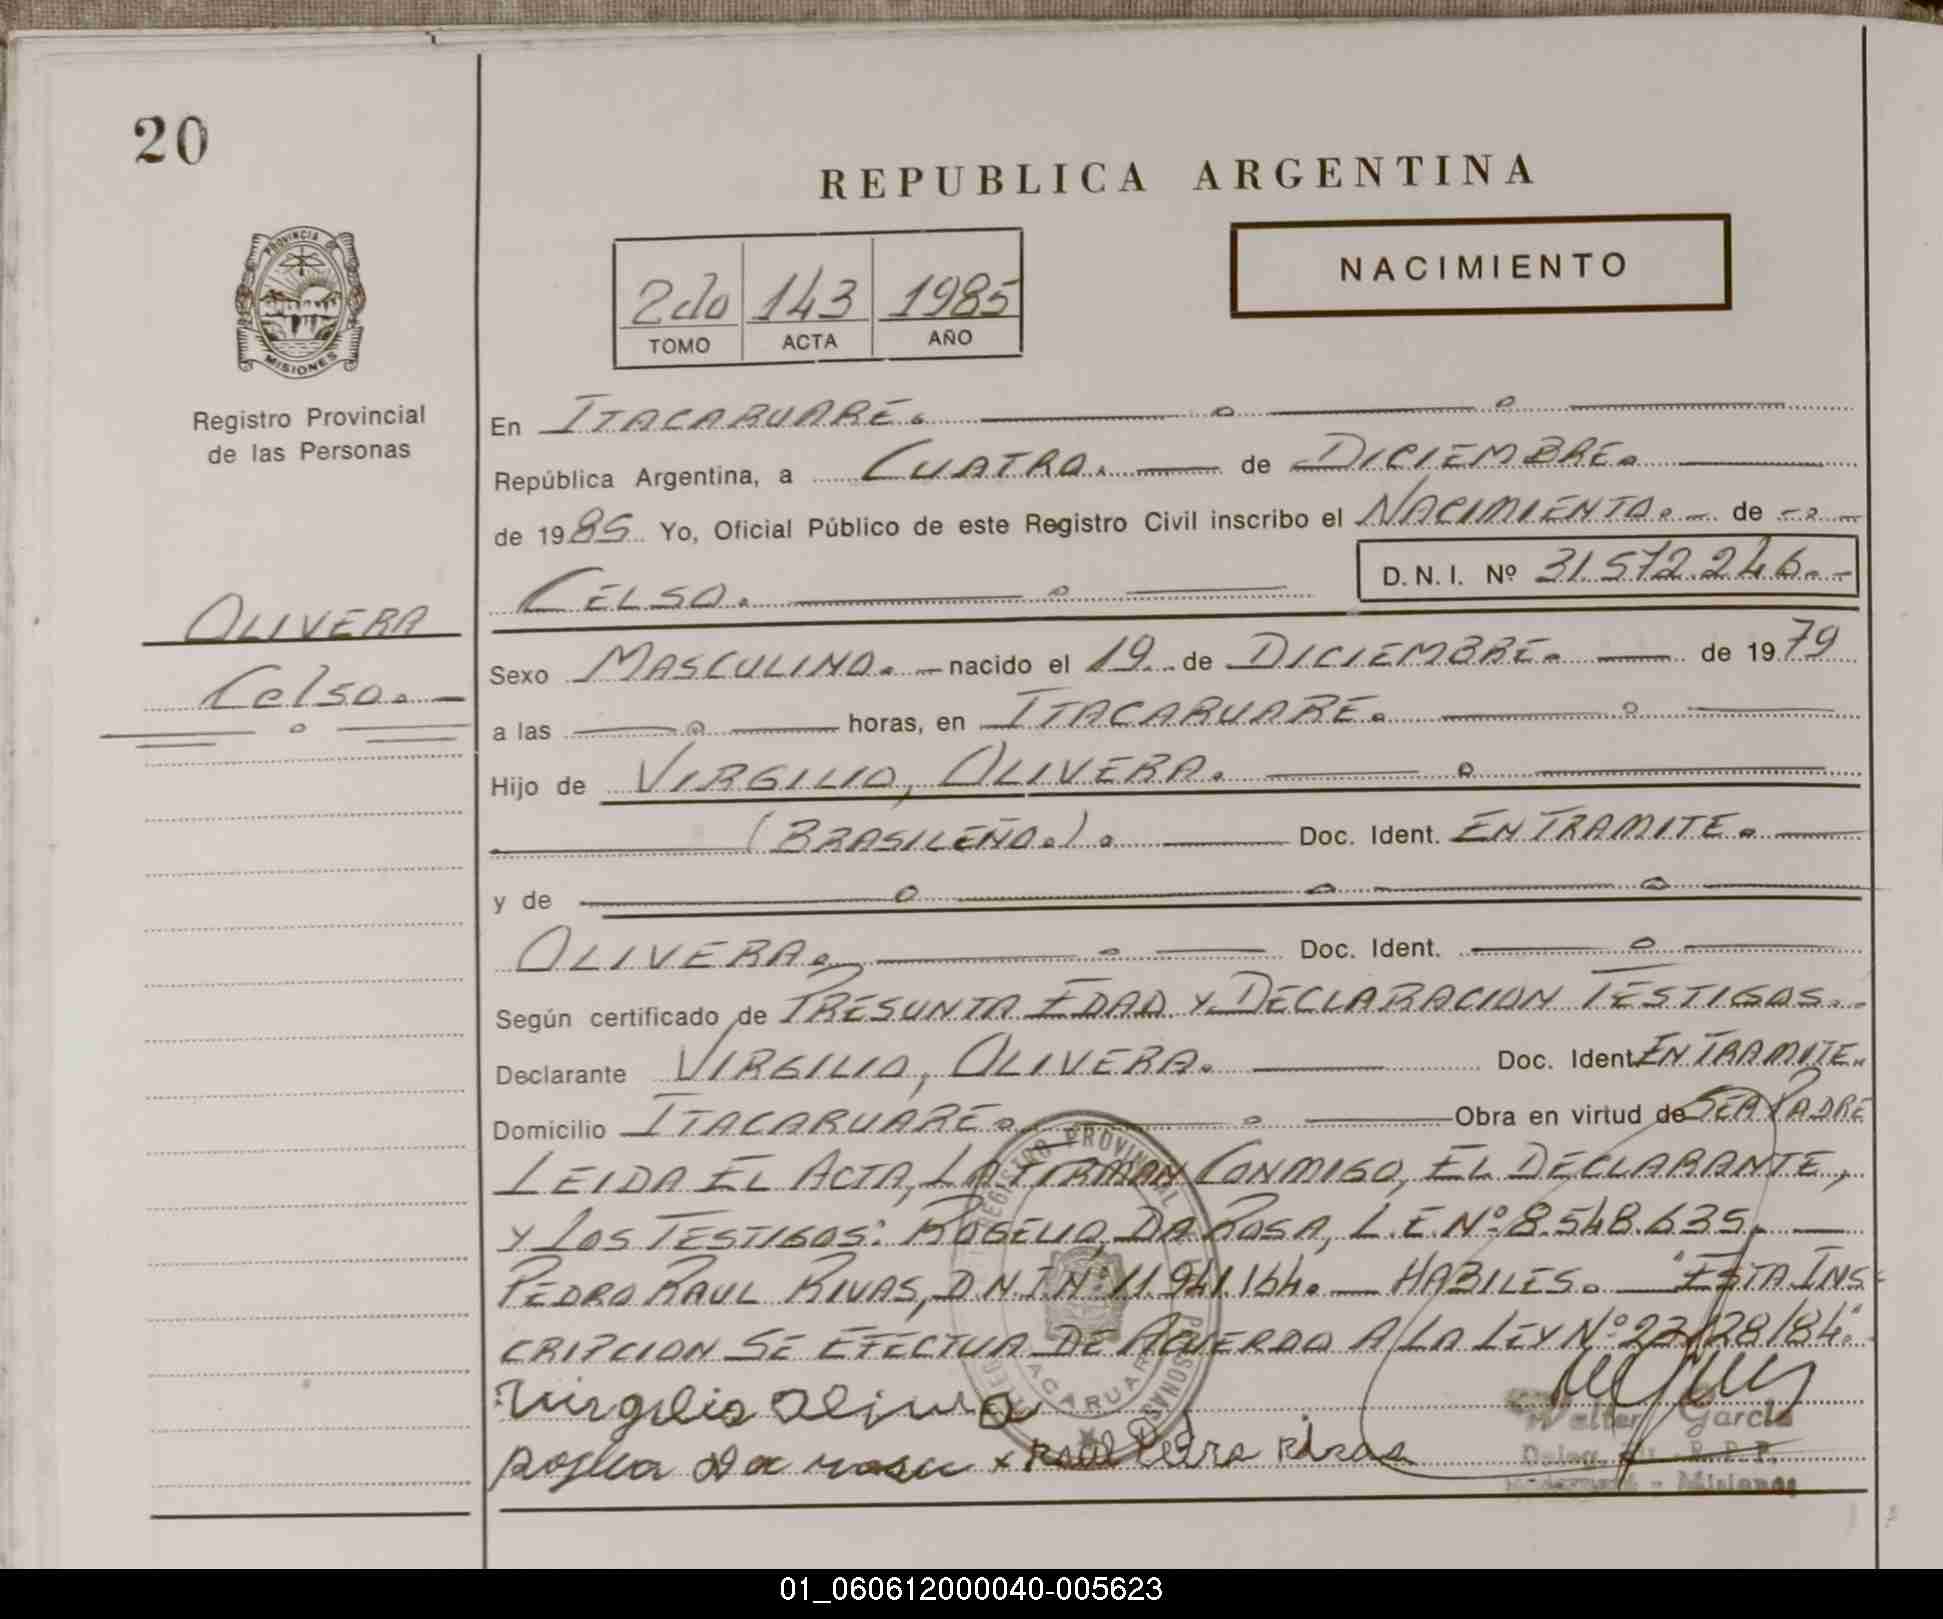 20
REPUBLICA ARGENTINA
PROVINCIA DE
MISIONES
NACIMIENTO
2do 143 1985
TOMO ACTA AÑO
Registro Provincial
de las Personas
OLIVERA
Celso.
En ITACARUARE.
República Argentina, a CUATRO. de DICIEMBRE.
de 1985 Yo, Oficial Público de este Registro Civil inscribo el NACIMIENTO. de
CELSO. D.N.I. Nº 31.572.246.
Sexo MASCULINO. nacido el 19 de DICIEMBRE. de 1979
a las horas, en ITACARUARE.
Hijo de VIRGILIO, OLIVERA.
(BRASILEÑO.). Doc. Ident. EN TRAMITE.
y de
OLIVERA. Doc. Ident.
Según certificado de PRESUNTA EDAD Y DECLARACION TESTIGOS.
Declarante VIRGILIO, OLIVERA. Doc. Ident. EN TRAMITE.
Domicilio ITACARUARE. Obra en virtud de SER PADRE
LEIDA EL ACTA, LA FIRMAN CONMIGO, EL DECLARANTE,
Y LOS TESTIGOS: ROGELIO, DA ROSA, L.E.Nº 8.548.635.
PEDRO RAUL RIVAS, D.N.I.Nº 11.941.164. HABILES. "ESTA INS
CRIPCION SE EFECTUA DE ACUERDO A LA LEY Nº 23128/84".
REGISTRO PROVINCIAL
Virgilio
da rosa x Raul Pedro Rivas
Walter García
Misiones
01_060612000040-005623